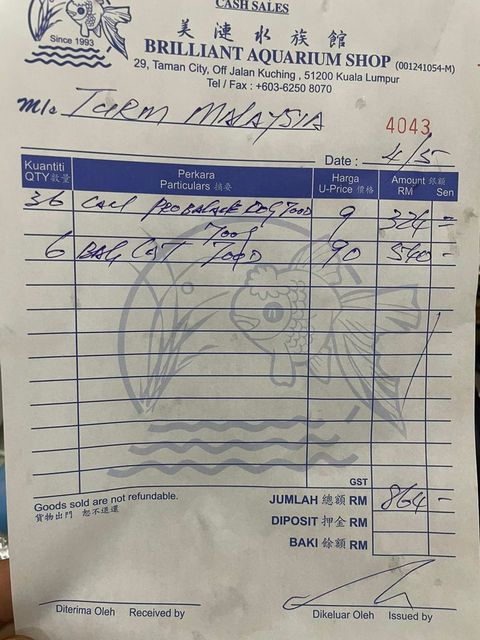 CASH SALES
美漣水族館
Since 1993
BRILLIANT AQUARIUM SHOP (001241054-M)
29, Taman City, Off Jalan Kuching , 51200 Kuala Lumpur
Tel / Fax : +603-6250 8070
M/s TCRM MALAYSIA
4043
Date : 4/5
Kuantiti Perkara Harga Amount 銀額
QTY 數量 Particulars 摘要 U-Price 價格 RM Sen
36 Can PROBALANCE DOG FOOD 9 324 -
700g
6 BAG CAT FOOD 90 540 -
GST
Goods sold are not refundable. JUMLAH 總額 RM 864 -
貨物出門 恕不退還
DIPOSIT 押金 RM
BAKI 餘額 RM
Diterima Oleh Received by Dikeluar Oleh Issued by